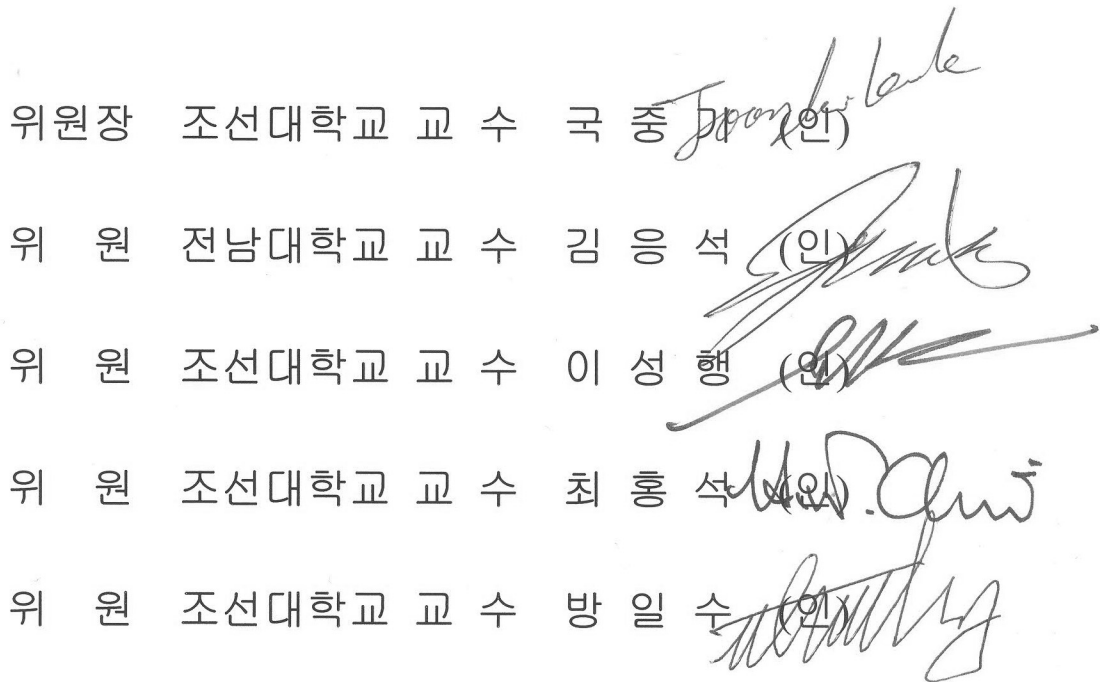 위원장 조선대학교 교 수 국 중 기 (인)
위 원 전남대학교 교 수 김 응 석 (인)
위 원 조선대학교 교 수 이 성 행 (인)
위 원 조선대학교 교 수 최 홍 석 (인)
위 원 조선대학교 교 수 방 일 수 (인)